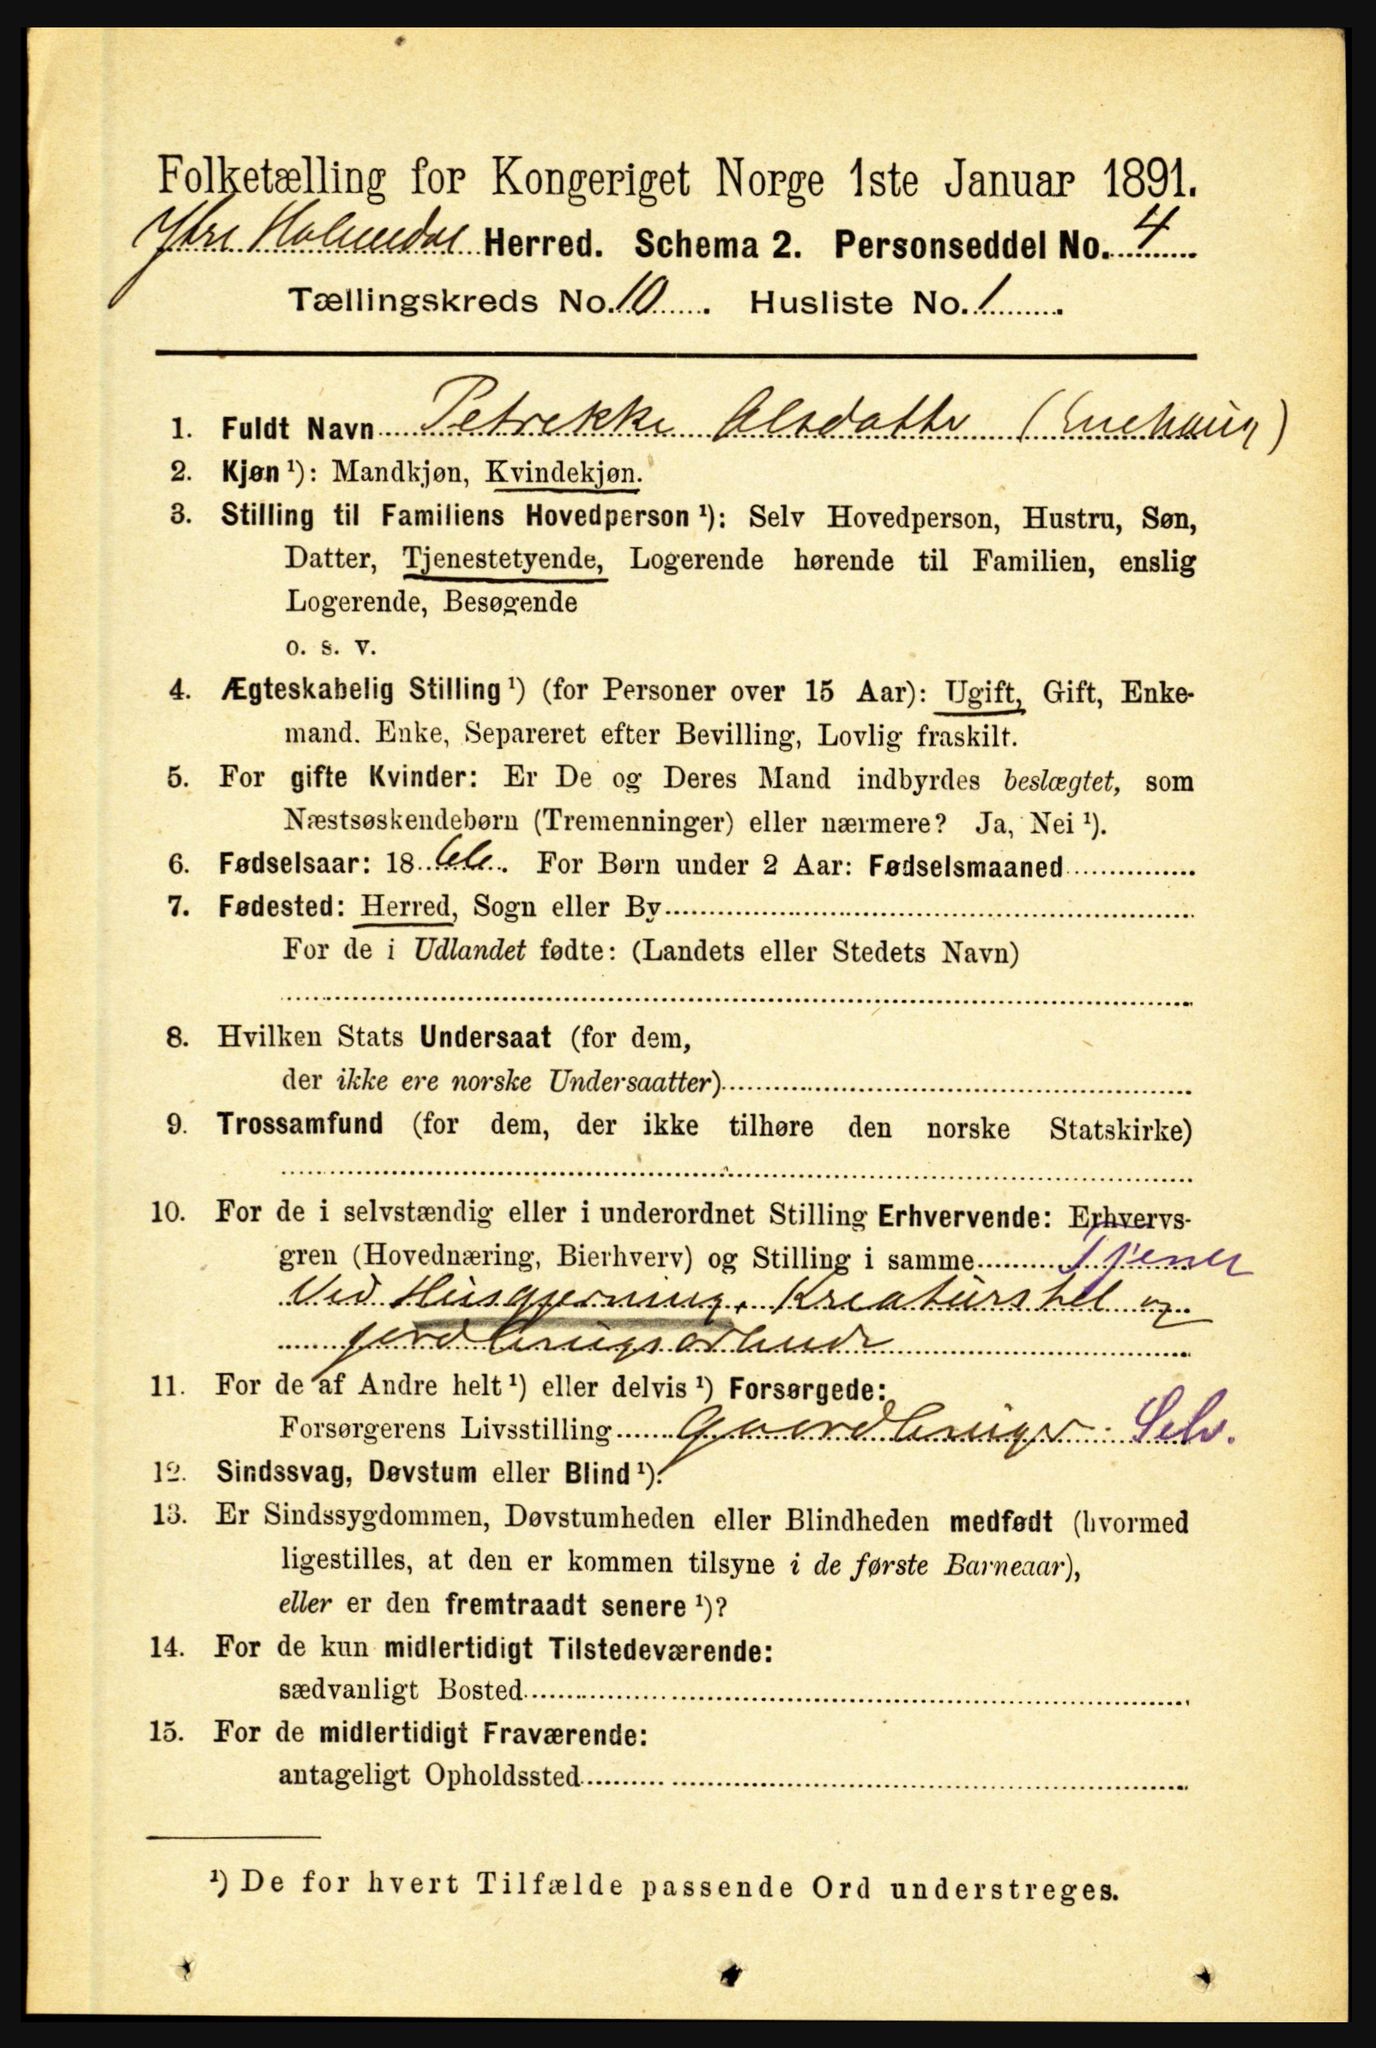 Folketælling for Kongeriget Norge 1ste Januar 1891.
Ytre Holmedal Herred. Schema 2. Personseddel No. 4
Tællingskreds No. 10. Husliste No. 1.
1. Fuldt Navn Petrekke Olsdatter (Enehaug)
2. Kjøn ¹): Mandkjøn, Kvindekjøn.
3. Stilling til Familiens Hovedperson ¹): Selv Hovedperson, Hustru, Søn,
Datter, Tjenestetyende, Logerende hørende til Familien, enslig
Logerende, Besøgende
o. s. v.
4. Ægteskabelig Stilling ¹) (for Personer over 15 Aar): Ugift, Gift, Enke-
mand. Enke, Separeret efter Bevilling, Lovlig fraskilt.
5. For gifte Kvinder: Er De og Deres Mand indbyrdes beslægtet, som
Næstsøskendebørn (Tremenninger) eller nærmere? Ja, Nei ¹).
6. Fødselsaar: 1866. For Børn under 2 Aar: Fødselsmaaned
7. Fødested: Herred, Sogn eller By
For de i Udlandet fødte: (Landets eller Stedets Navn)
8. Hvilken Stats Undersaat (for dem,
der ikke ere norske Undersaatter)
9. Trossamfund (for dem, der ikke tilhøre den norske Statskirke)
10. For de i selvstændig eller i underordnet Stilling Erhvervende: Erhvervs-
gren (Hovednæring, Bierhverv) og Stilling i samme Tjener
Ved Husgjerning, Kreaturstel og
jordbrugsarbeide
11. For de af Andre helt ¹) eller delvis ¹) Forsørgede:
Forsørgerens Livsstilling Gaardbruger Selv.
12. Sindssvag, Døvstum eller Blind ¹).
13. Er Sindssygdommen, Døvstumheden eller Blindheden medfødt (hvormed
ligestilles, at den er kommen tilsyne i de første Barneaar),
eller er den fremtraadt senere ¹)?
14. For de kun midlertidigt Tilstedeværende:
sædvanligt Bosted
15. For de midlertidigt Fraværende:
antageligt Opholdssted
¹) De for hvert Tilfælde passende Ord understreges.